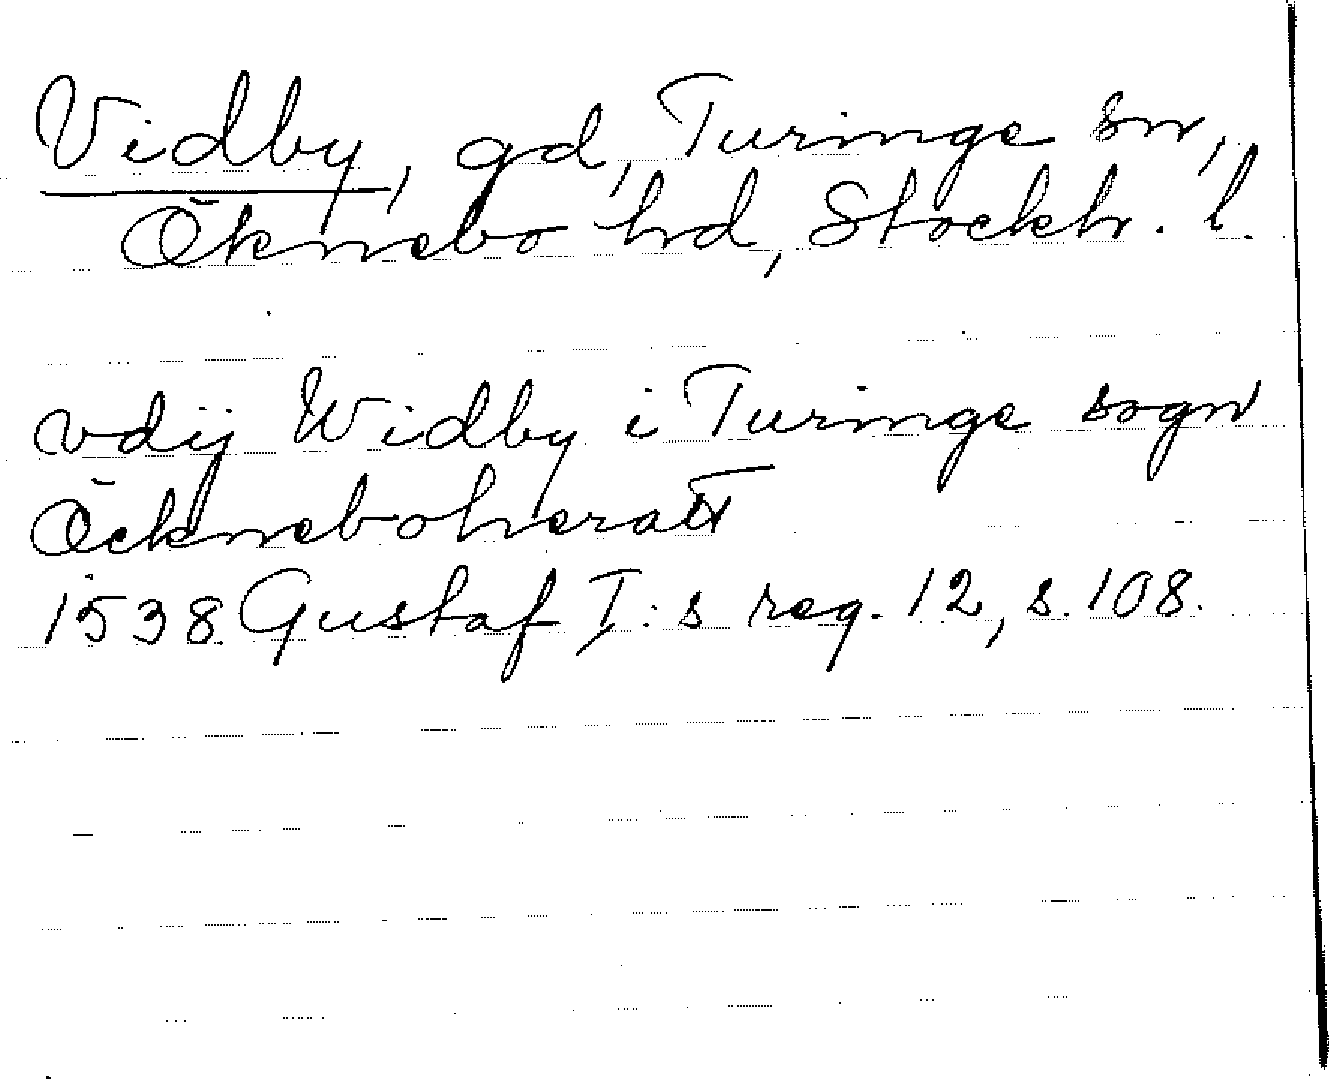 Vidby, gd, Turinge sn,
Öknebo hd, Stockh. l.
vdij Widby i Turinge sogn
Öckneboheratt
1538 Gustaf I:s reg. 12, s. 108.